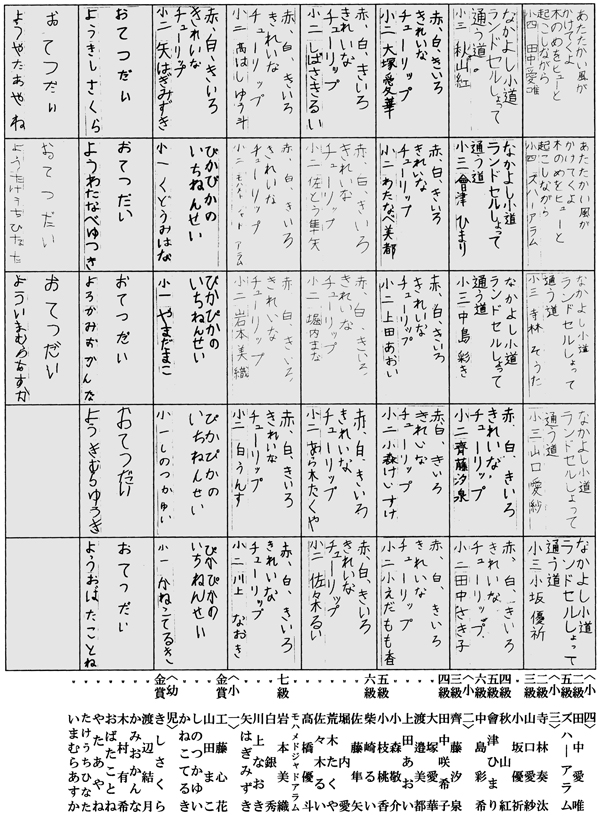 あたたかい風が
かけてくよ
木のめをヒューと
起こしながら
小四 田中愛唯
あたたかい風が
かけてくよ
木のめをヒューと
起こしながら
小四 ズハーアラム
なかよし小道
ランドセルしょって
通う道
小三 寺林そうた
なかよし小道
ランドセルしょって
通う道
小三 山口愛紗
なかよし小道
ランドセルしょって
通う道
小三 小坂優祈
なかよし小道
ランドセルしょって
通う道。
小三 秋山紅
なかよし小道
ランドセルしょって
通う道
小三 會津ひまり
なかよし小道
ランドセルしょって
通う道
小三 中島彩き
赤、白、きいろ
きれいな
チューリップ
小三 齊藤汐泉
赤、白、きいろ
きれいな
チューリップ
小二 田中さき子
赤、白、きいろ
きれいな
チューリップ
小二 大塚愛華
赤、白、きいろ
きれいな
チューリップ
小二 わたなべ美都
赤、白、きいろ
きれいな
チューリップ
小二 上田あおい
赤、白、きいろ
きれいな
チューリップ
小二 小森けいすけ
赤、白、きいろ
きれいな
チューリップ
小二 小えだもも香
赤、白、きいろ
きれいな
チューリップ
小二 しばさきるい
赤、白、きいろ
きれいな
チューリップ
小二 佐とう隼矢
赤、白、きいろ
きれいな
チューリップ
小二 堀内まな
赤、白、きいろ
きれいな
チューリップ
小二 あら木たくや
赤、白、きいろ
きれいな
チューリップ
小二 佐々木るい
赤、白、きいろ
きれいな
チューリップ
小二 高はしゆう斗
赤、白、きいろ
きれいな
チューリップ
小二
赤、白、きいろ
きれいな
チューリップ
小二 岩本美織
赤、白、きいろ
きれいな
チューリップ
小二 白うんす
赤、白、きいろ
きれいな
チューリップ
小二 川上なおき
赤、白、きいろ
きれいな
チューリップ
小二 矢はぎみずき
ぴかぴかの
いちねんせい
小一 くどうみはな
ぴかぴかの
いちねんせい
小一 やまだまこ
ぴかぴかの
いちねんせい
小一 しのつかゆい
ぴかぴかの
いちねんせい
小一 かねこてるき
おてつだい
ようきしさくら
おてつだい
ようわたなべゆつき
おてつだい
ようかみおかんな
おてつだい
ようきむらゆうき
おてつだい
ようおばたことね
おてつだい
ようやたあやね
おてつだい
ようたけうちひなた
おてつだい
よういまむらあすか
〈小四〉
二級 田中愛唯
〃 ズハーアラム
〈小三〉
二級 寺林奏汰
〃 山口愛紗
〃 小坂優祈
四級 秋山紅
五級 會津ひまり
六級 中島彩希
三級 齊藤汐泉
〈小二〉
四級 田中咲希子
〃 大塚愛華
〃 渡邉美都
〃 上田あおい
〃 小森敬介
五級 小枝桃香
六級 柴崎るい
〃 佐藤隼矢
〃 堀内愛
〃 荒木たくや
〃 佐々木るい
〃 高橋優斗
〃 モハメドジャドアラム
七級 岩本美織
〃 白銀秀
〃 川上なおき
〃 矢はぎみずき
〈小一〉
金賞 工藤心花
〃 山田まこ
〃 しのつかゆい
〃 かねこてるき
〈幼児〉
金賞 きしさくら
〃 渡辺結月
〃 かみおかんな
〃 木村有希
〃 おばたことね
〃 やたあやね
〃 たけうちひなた
〃 いまむらあすか